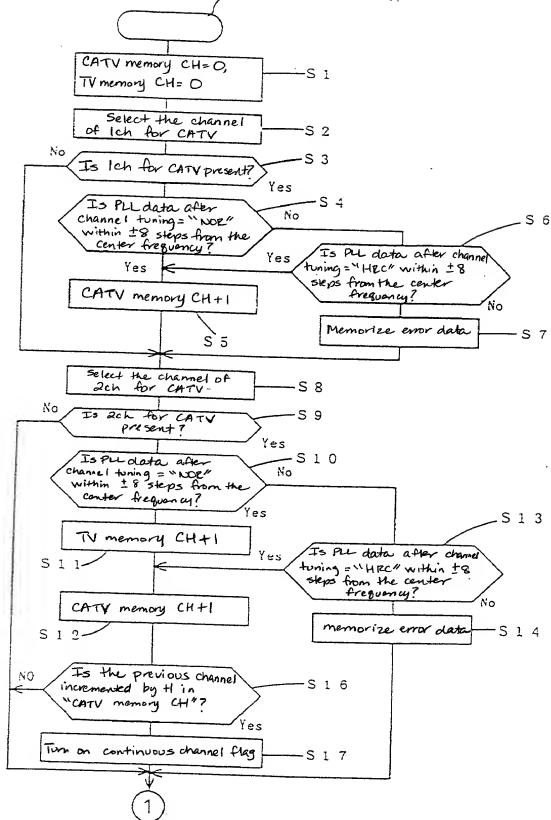 CATV memory CH=0,
TV memory CH=0
S 1
Select the channel
of 1ch for CATV
S 2
No
Is 1ch for CATV present?
S 3
Yes
Is PLL data after
channel tuning="NOR"
within ±8 steps from the
center frequency?
S 4
No
Yes
Is PLL data after channel
tuning="HRC" within ±8
steps from the center
frequency?
S 6
Yes
No
CATV memory CH+1
S 5
Memorize error data
S 7
Select the channel of
2ch for CATV
S 8
No
Is 2ch for CATV
present?
S 9
Yes
Is PLL data after
channel tuning="NOR"
within ±8 steps from the
center frequency?
S 1 0
No
Yes
TV memory CH+1
S 1 1
Is PLL data after channel
tuning="HRC" within ±8
steps from the center
frequency?
S 1 3
Yes
No
CATV memory CH+1
S 1 2
memorize error data
S 1 4
NO
Is the previous channel
incremented by +1 in
"CATV memory CH"?
S 1 6
Yes
Turn on continuous channel flag
S 1 7
1